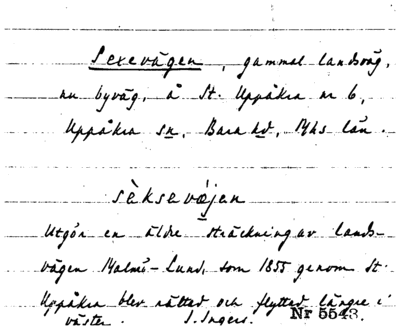 Sexevägen, gammal landsväg,
nu byväg, å St. Uppåkra nr 6,
Uppåkra sn, Bara hd, Mhs län.
sèksevæjen
Utgör en äldre sträckning av lands-
vägen Malmö-Lund, som 1855 genom St.
Uppåkra blev rättad och flyttad längre i
väster. I. Ingers. Nr 5543.